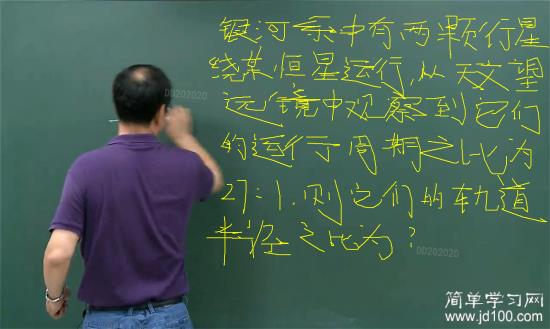 银河系中有两颗行星
绕某恒星运行,从天文望
远镜中观察到它们
的运行周期之比为
27:1.则它们的轨道
半径之比为?
DD202020
DD202020
简单学习网
www.jd100.com